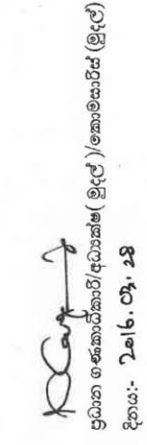 ප්‍රධාන ගණකාධිකාරි/අධ්‍යක්ෂ( මුදල් )/කොමසාරිස් (මුදල්)
දිනය:- 2016. 03. 28